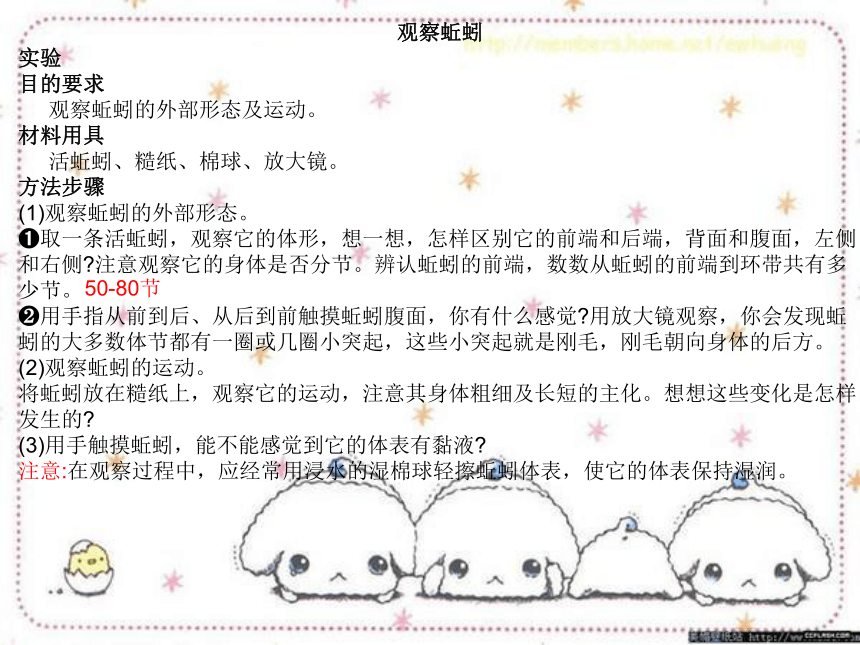 观察蚯蚓
http://members.home.net/ewhuang
实验
目的要求
观察蚯蚓的外部形态及运动。
材料用具
活蚯蚓、糙纸、棉球、放大镜。
方法步骤
(1)观察蚯蚓的外部形态。
❶取一条活蚯蚓，观察它的体形，想一想，怎样区别它的前端和后端，背面和腹面，左侧
和右侧?注意观察它的身体是否分节。辨认蚯蚓的前端，数数从蚯蚓的前端到环带共有多
少节。50-80节
❷用手指从前到后、从后到前触摸蚯蚓腹面，你有什么感觉?用放大镜观察，你会发现蚯
蚓的大多数体节都有一圈或几圈小突起，这些小突起就是刚毛，刚毛朝向身体的后方。
(2)观察蚯蚓的运动。
将蚯蚓放在糙纸上，观察它的运动，注意其身体粗细及长短的主化。想想这些变化是怎样
发生的?
(3)用手触摸蚯蚓，能不能感觉到它的体表有黏液?
注意:在观察过程中，应经常用浸水的湿棉球轻擦蚯蚓体表，使它的体表保持湿润。
CCFLASH.COM